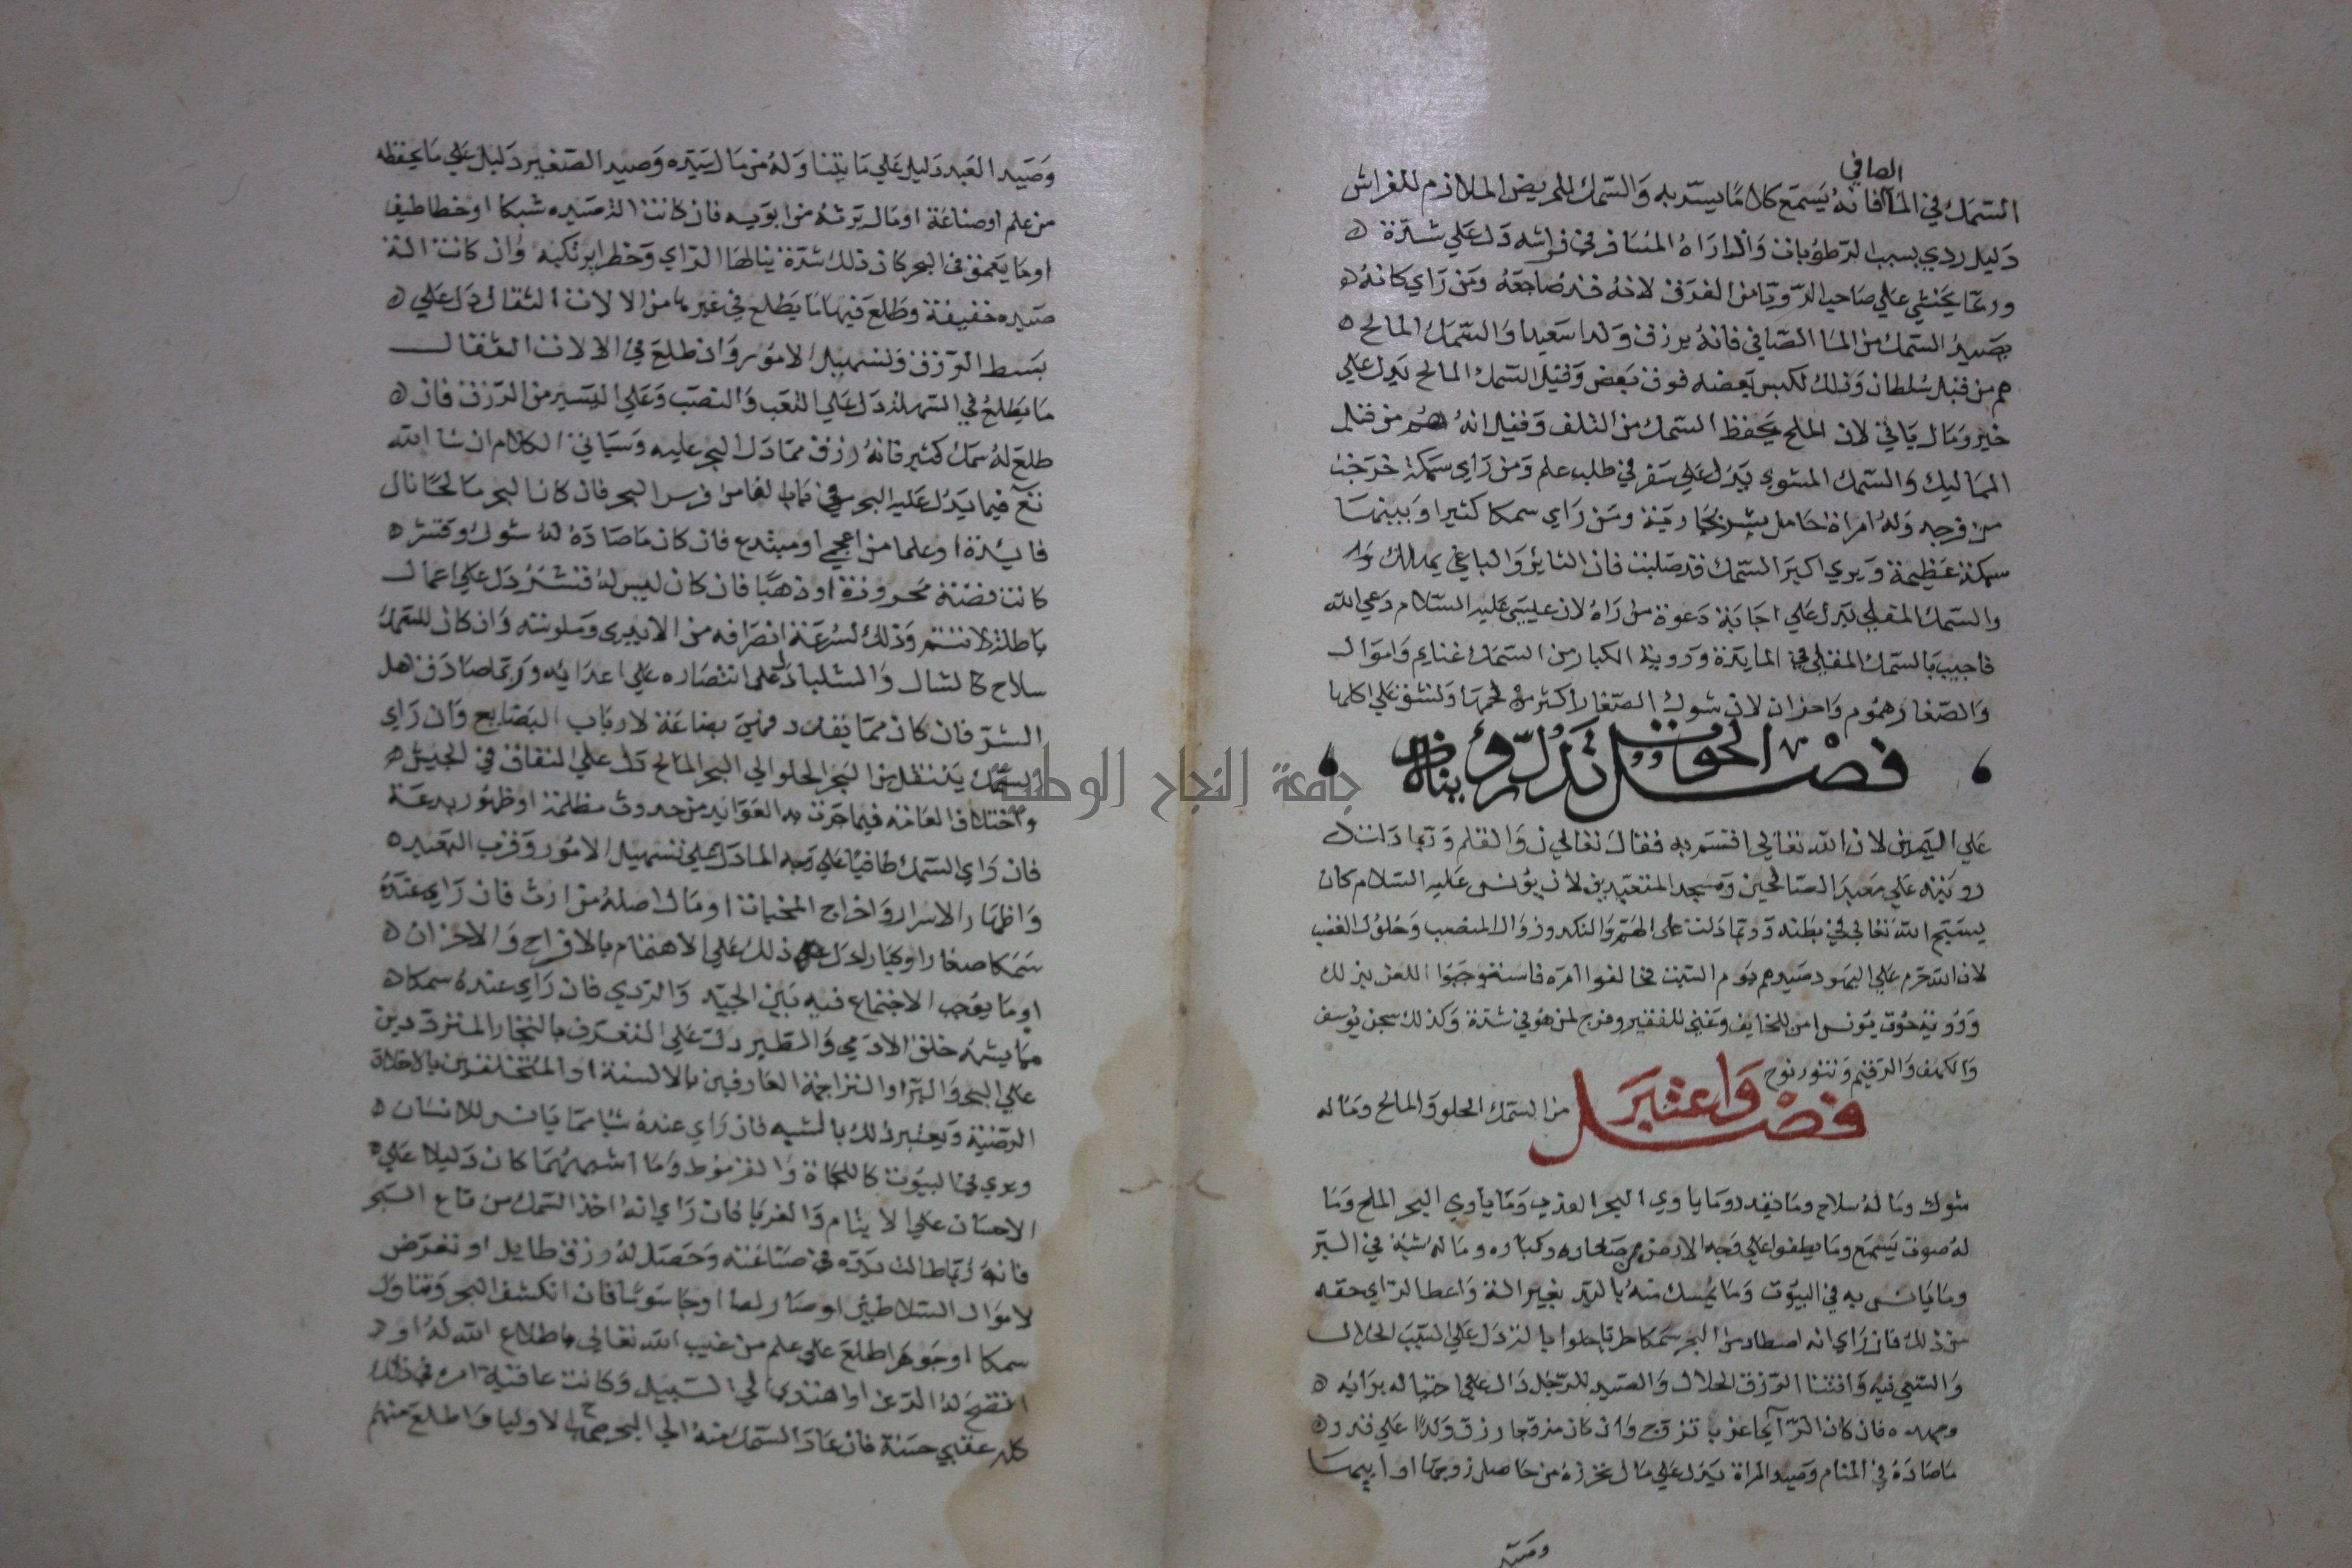 الصافي
السمك في الماء فانه يسمع كلاما يسر به والسمك للمريض الملازم للفراش
دليل ردي بسبب الرطوبات واذا راه المسافر في فراشه دل علي شدة
وربما يخشي علي صاحب الرويا من الغرق لانه قد ضاجعه ومن راي كانه
يصيد السمك من الما الصافي فانه يرزق ولدا سعيدا والسمك المالح
هم من قبل سلطان وذلك لكبس بعضه فوق بعض وقيل السمك المالح يدل علي
خير ومال ياقي لان الملح يحفظ السمك من التلف وقيل انه هم من قبل
المماليك والسمك المشوي يدل علي سفر في طلب علم ومن راي سمكة خرجت
من فرجه وله امراة حامل بشر بجارية ومن راي سمكا كثيرا وبينهما
سمكة عظيمة ويري اكبر السمك قد صلبت فان الثاير والباغي يهلك
والسمك المقلي يدل علي اجابة دعوة من راه لان عيسي عليه السلام دعي الله
فاجيب بالسمك المقلي في المايدة وروية الكبار من السمك غنايم واموال
والصغار هموم واحزان لان شوك الصغار اكثر من لحمها ولتشق علي اكلها
فصل الحوت تدل رويته
علي اليمين لان الله تعالي اقسم به فقال تعالي ن والقلم وربما دلت
رويته علي معبد الصالحين ومسجد المتعبدين لان يونس عليه السلام كان
يسبح الله تعالي في بطنه وربما دلت علي الهم والنكد وزوال المنصب وحلول الغضب
لان الله حرم علي اليهود صيدهم يوم السبت فخالفوا امره فاستوجبوا اللعن بذلك
وروية حوت يونس امن للخايف وغني للفقير وفرج لمن هو في شدة وكذلك سجن يوسف
والكهف والرقيم وتنور نوح
فصل واعتبر من السمك الحلو والمالح وماله
شوك وماله سلاح وما يفدد وما ياوي البحر العذب وما ياوي البحر الملح وما
له صوت يسمع وما يطفوا علي وجه الارض من صغاره وكباره وماله شبه في البر
وما يانس به في البيوت وما يمسك منه باليد بغير الة واعطا الراي حقه
من ذلك فان راي انه اصطاد من البحر سمكا طريا حلوا بالنز دل علي السبب الحلال
والسعي فيه واقتنا الرزق الحلال والصيد للرجل دال علي احتياله برايه
وجهده فان كان الراي عزبا تزوج وان كان مزوجا رزق ولدا علي قدر
ما صاده في المنام وصيد المراة يدل علي مال تحرزه من حاصل زوجها او ابيها
وصيد
وصيد العبد دليل علي ما يتناوله من مال سيده وصيد الصغير دليل علي ما يحفظه
من علم او صناعة او مال يرثه من ابويه فان كانت الة صيده شبكا او خطاطيف
او ما يعمق في البحر كان ذلك شدة ينالها الراي وخطر ايرتكبه وان كانت الة
صيده خفيفة وطلع فيها ما يطلع في غيرها من الالات الثقال دل علي
بسط الرزق وتسهيل الامور وان طلع في الالات الثقال
ما يطلع في السهلة دل علي التعب والنصب وعلي اليسير من الرزق فان
طلع له سمك كثير فانه رزق مما دل البحر عليه وسياتي الكلام ان شا الله
تع فيما يدل عليه البحر في باب الفا من فرس البحر فان كان البحر مالحا نال
فايدة او علما من اعجمي او مبتدع فان كان ما صاده له شوك وقشر
كانت فضة محروزة او ذهبا فان كان ليس له قشر دل علي اعمال
باطلة لا تتم وذلك لسرعة انصرافه من الايدي وملوسته وان كان للسمك
سلاح كالشال والشلبا دل علي انتصاره علي اعدايه وربما صادق اهل
الشر فان كان مما يفدد فهي بضاعة لارباب البضايع وان راي
السمك ينتقل من البحر الحلو الي البحر المالح دل علي النفاق في الجيش
واختلاف العامة فيما جرت به العوايد من حدوث مظلمة او ظهور بدعة
فان راي السمك طافيا علي وجه الما دل علي تسهيل الامور وقرب البعيد
واظهار الاسرار واخراج المخبات او مال اصله من ارث فان راي عنده
سمكا صغارا وكبارا دل ذلك علي الاهتمام بالافراح والاحزان
او ما يوجب الاجتماع فيه بين الجيد والردي فان راي عنده سمكا
مما يشبه خلق الادمي والطير دل علي التعرف بالتجار المترددين
علي البحر والبر او التراجمة العارفين بالالسنة او المتخلقين بالاخلاق
الرضية ويعتبر ذلك بالشبه فان راي عنده شيا مما يانس للانسان
ويربي في البيوت كاللجاة والقرموط وما اشبههما كان دليلا علي
الاحسان علي الايتام والغربا فان راي انه اخذ السمك من قاع البحر
فانه ربما طالت يده في صناعته وحصل له رزق طايل او تعرض
لاموال السلاطين او صار لصا او جاسوسا فان انكشف البحر وتناول
سمكا او جوهرا طلع علي علم من غيب الله تعالي باطلاع الله له او
اتضح له الدين او اهتدي الي السبيل وكانت عاقبة امره في ذلك
كله عقبي حسنة فان عاد السمك منه الي البحر صحب الاوليا واطلع منهم